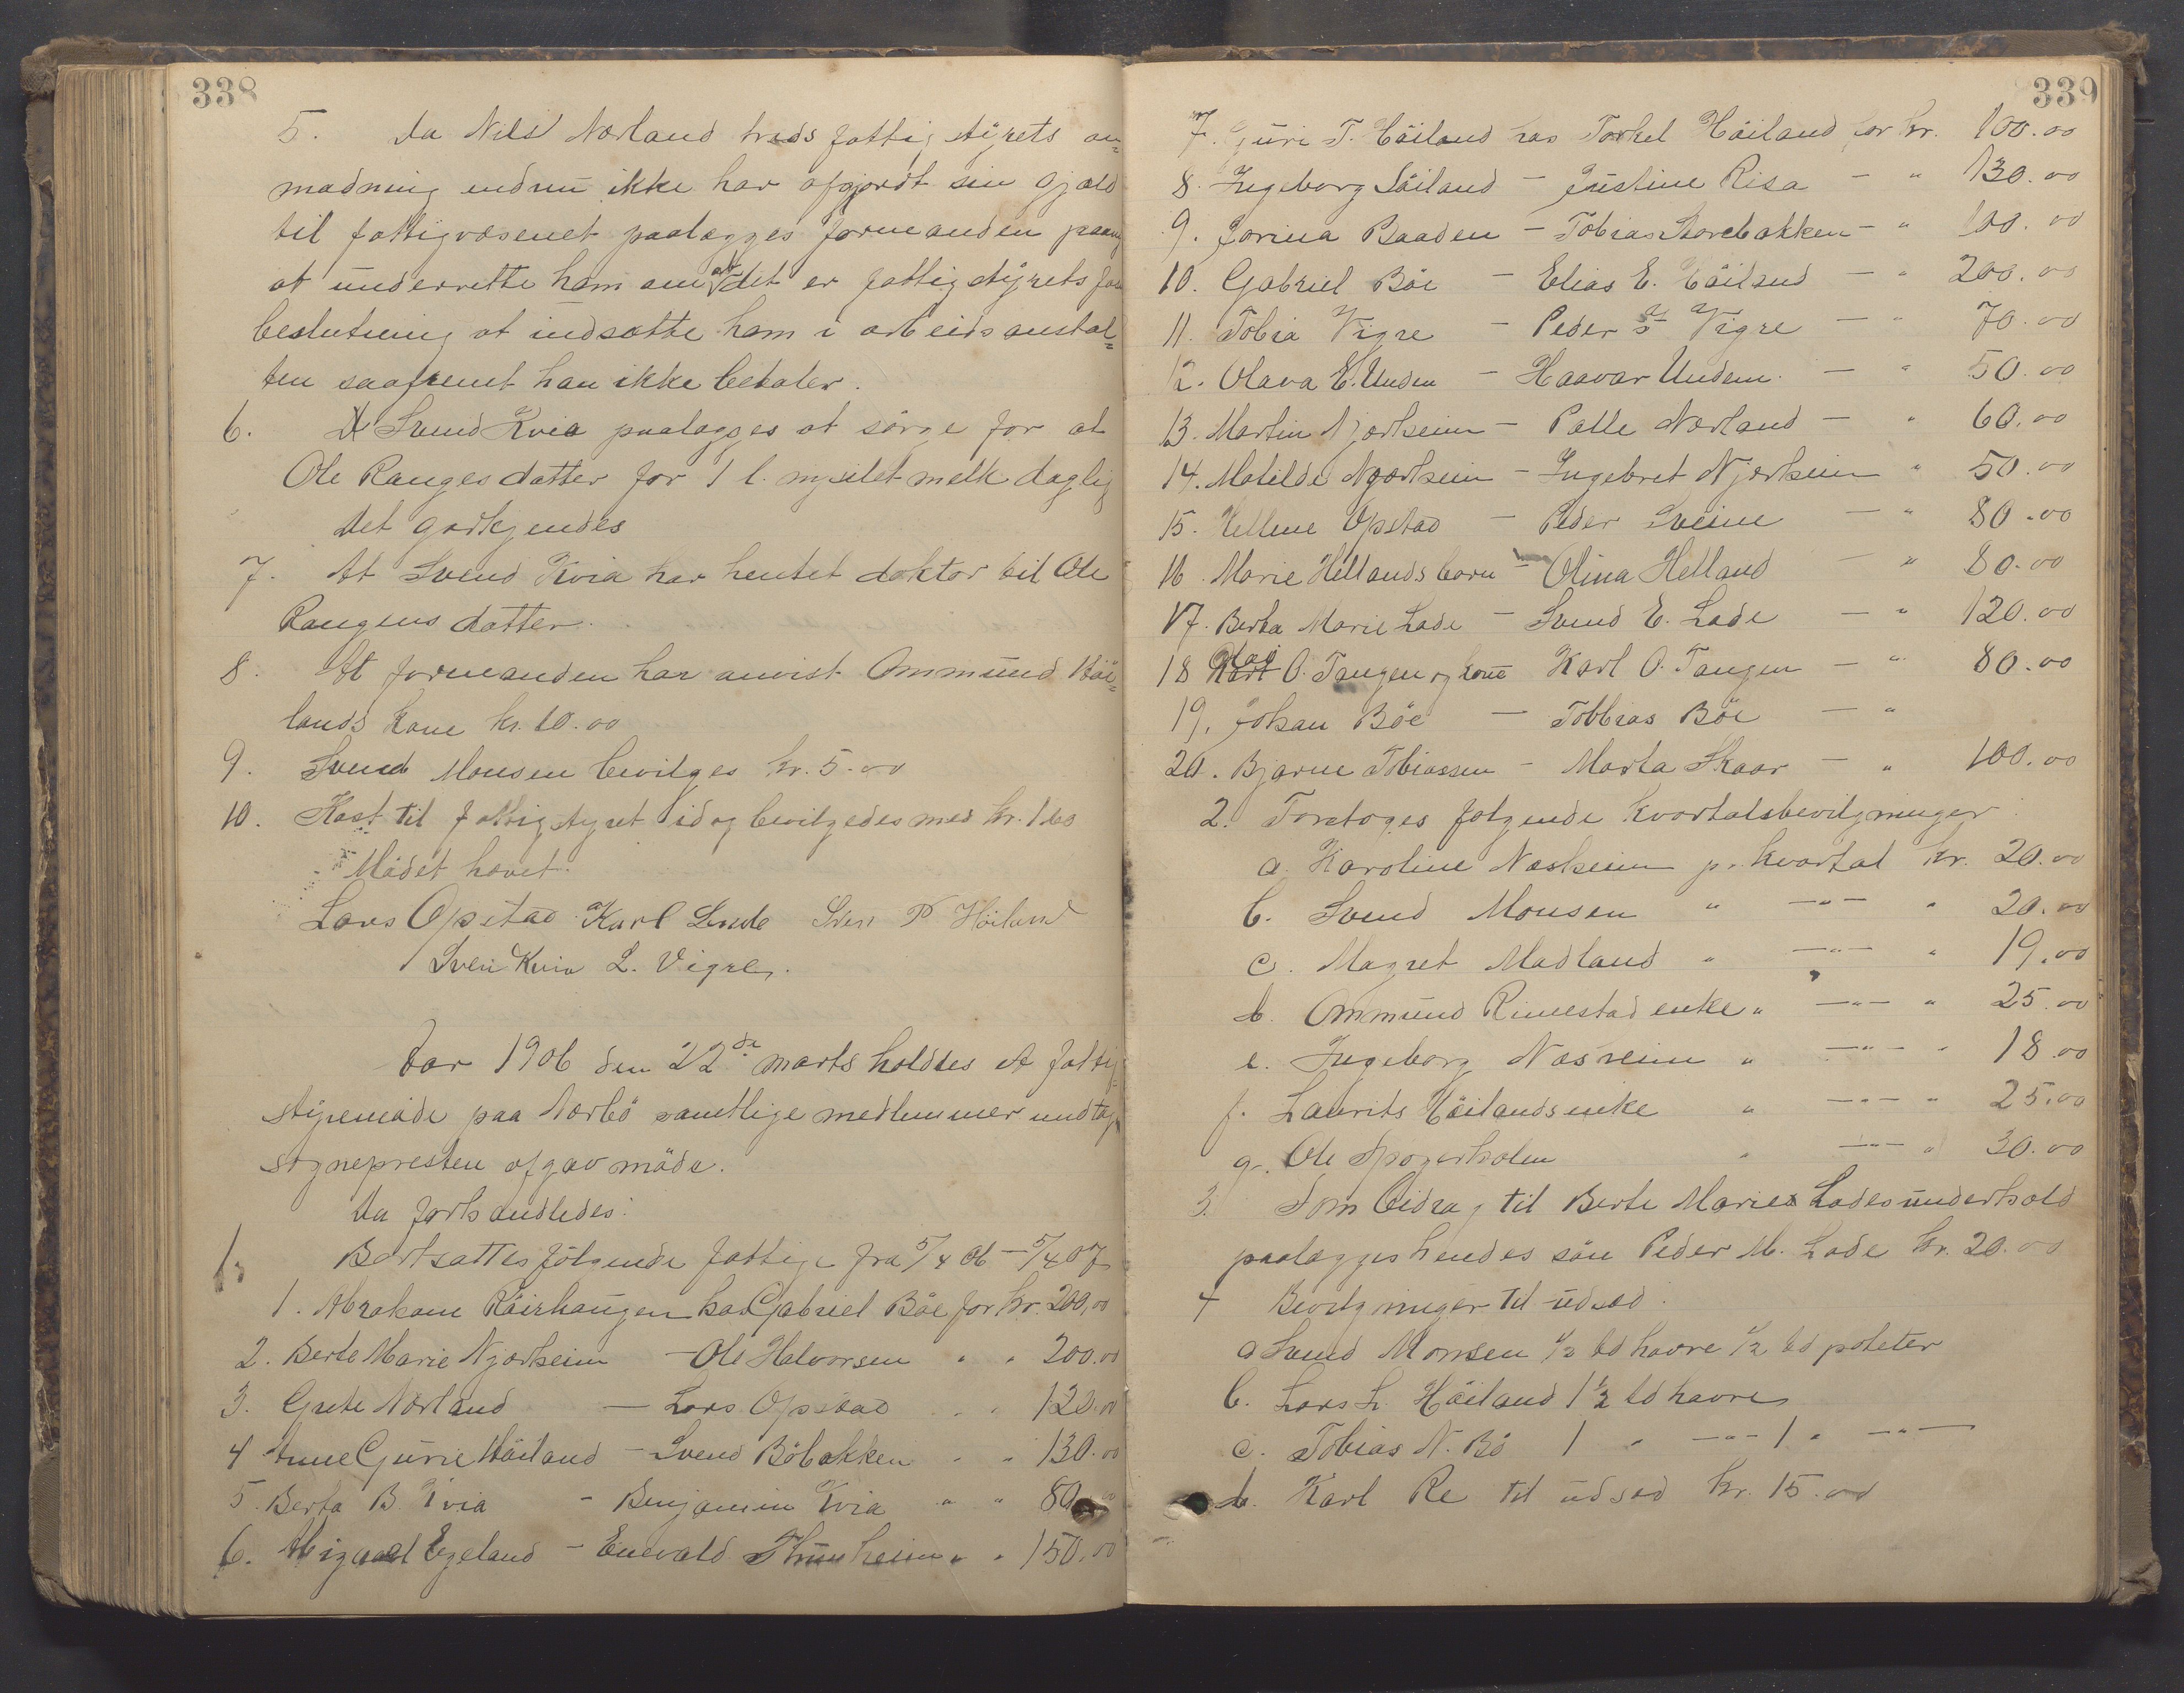 338
5. Da Nils Nærland trods fattigstyrets an=
modning endnu ikke har afgjordt sin gjæld
til fattigvæsenet paalægges formanden paany
at underrette ham om at det er fattigstyrets
beslutning at indsætte ham i arbeidsanstal=
ten saafremt han ikke betaler.
6. Svend Kvia paalægges at sörge for at
Ole Ranges datter for 1 l. nysilet melk daglig
Det godkjendes
7. At Svend Kvia har hentet doktor til Ole
Rangens datter.
8. At formanden har anvist Ommund Höi=
lands kone kr. 10.00
9. Svend Monsen bevilges kr. 5.00
10. Kost til fattigstyret idag bevilgedes med kr. 1.60
Mödet hævet.
Lars Opstad Karl Lende Sven P Höiland
Sven Kvia L. Vigre.
Aar 1906 den 22de marts holdtes et fattig=
styremöde paa Nærbö samtlige medlemmer undtagen
sognepresten afgav möde.
Da forhandledes:
1. Bortsattes fölgende fattige fra 5/4 06 - 5/4 07
1. Abraham Röirhaugen hos Gabriel Böe for kr. 200.00
2. Berte Marie Njærheim - Ole Halvorsen " " 200.00
3. Grete Nærland - Lars Opstad " " 120.00
4 Anne Gurie Höiland - Svend Böbakken " " 130.00
5. Berta B. Kvia - Benjamin Kvia " " 80.00
6. Abigael Egeland - Enevald Thunheim " " 150.00
339
7. Guri T. Höiland hos Torkel Höiland for kr. 100.00
8. Ingeborg Löiland - Justine Risa - " 130.00
9. Jorina Baaden - Tobias Storebakken - " 100.00
10. Gabriel Böe - Elias E. Höiland - " 200.00
11. Tobia Vigre - Peder S Vigre - " 70.00
12. Olava E. Undem - Haavar Undem - " 50.00
13. Martin Njærheim - Palle Nærland - " 60.00
14. Matilde Njærheim - Ingebret Njærheim " 50.00
15. Hellene Opstad - Peder Sveine - " 80.00
16. Marie Hellands barn - Olina Helland - " 80.00
17. Berta Marie Lade - Svend E. Lade - " 120.00
18 Olai O. Tangen og kone Karl O. Tangen - " 80.00
19. Johan Böe - Tobbias Böe - "
20. Bjarne Tobiassen - Marta Skaar - " 100.00
2. Foretoges følgende kvartalsbevilgninger
a. Karoline Næsheim p. kvartal kr. 20.00
b. Svend Monsen " -"- " 20.00
c. Magret Madland " -"- " 19.00
d. Ommund Rimestad enke " -"- " 25.00
e. Ingeborg Næsheim " -"- " 18.00
f. Laurits Höilands enke " -"- " 25.00
g. Ole " -"- " 30.00
3. Som bidrag til Berte Marie Lades underhold
paalægges hendes sön Peder M. Lade kr. 20.00
4 Bevilgninger til udsæd.
a Svend Monsen 1/2 td havre 1/2 td poteter
b. Lars L. Höiland 1 1/2 td havre
c. Tobias N. Bö 1 " -"- 1 " -"-
d. Karl Re til udsæd kr. 15.00